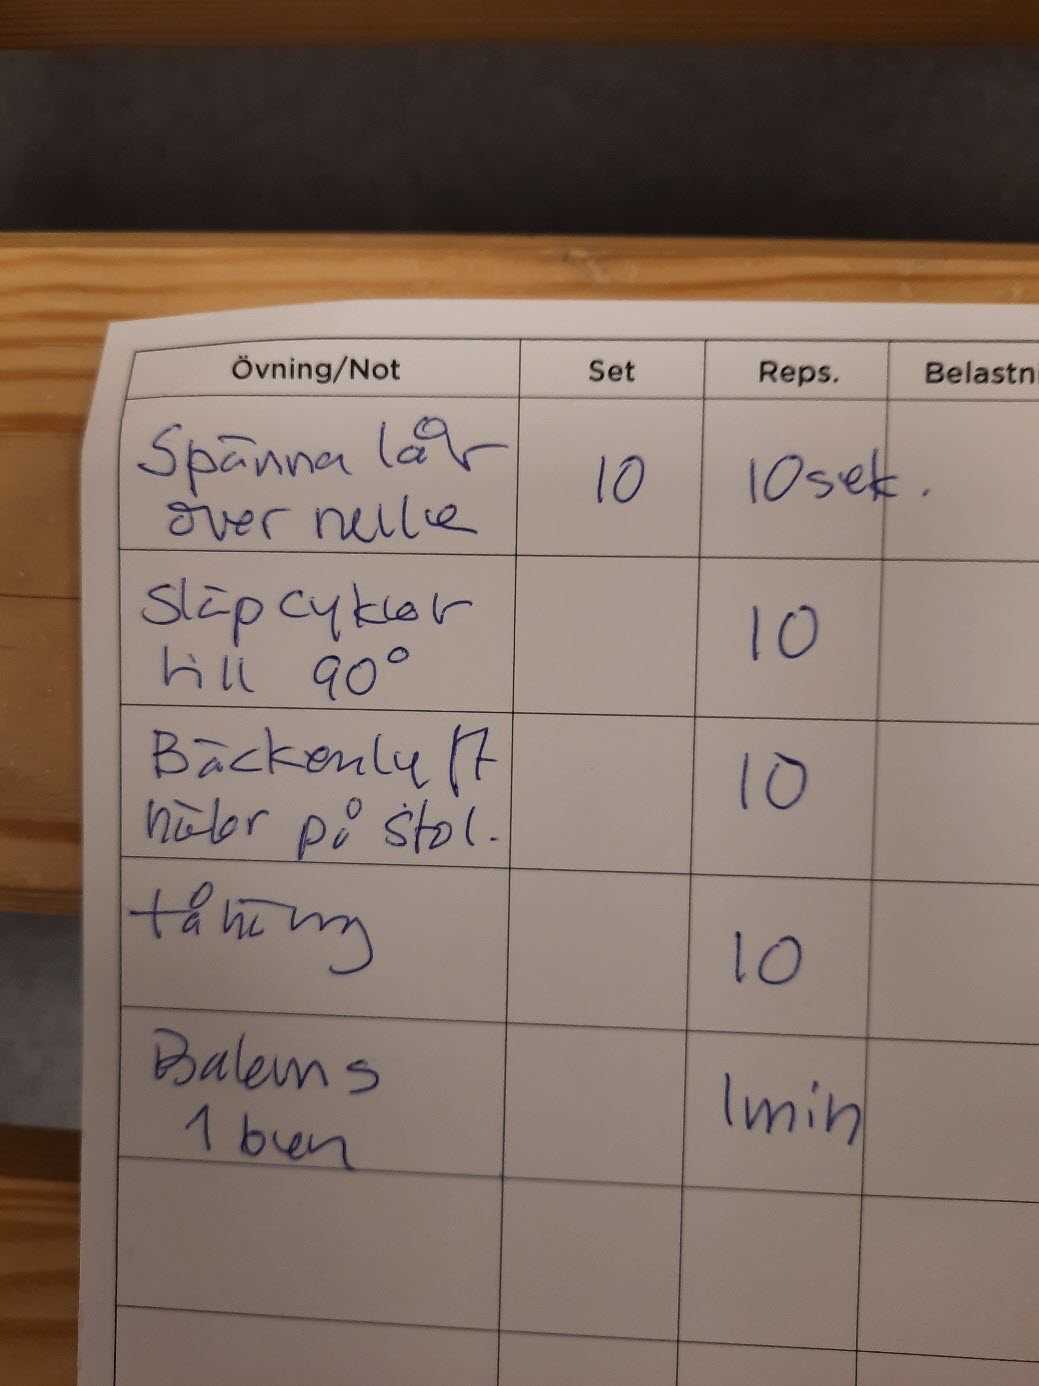 Övning/Not Set Reps. Belastni
Spänna lår 10 10sek.
över rulle
Släpcyklar 10
till 90°
Bäckenlyft 10
hälar på stol.
tåhävning 10
Balans 1min
1 ben